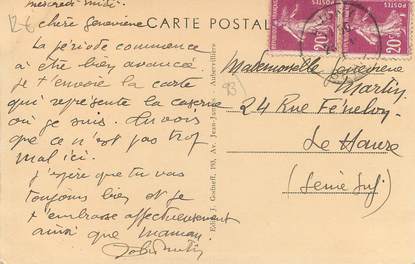 mercredi midi.
chère Geneviève
CARTE POSTALE
La période commence
à être bien avancé.
je t'envoie la carte
qui représente la caserne
où je suis. Tu vois
que ce n'est pas trop
mal ici.
J'espère que tu vas
toujours bien et je
t'embrasse affectueusement
ainsi que maman.
Edit. J. Godneff, 193, Av. Jean-Jaurès, Aubervilliers
20c
20c
Mademoiselle Geneviève
Martin
24 Rue Fénelon
Le Havre
(Seine Inf.)
93